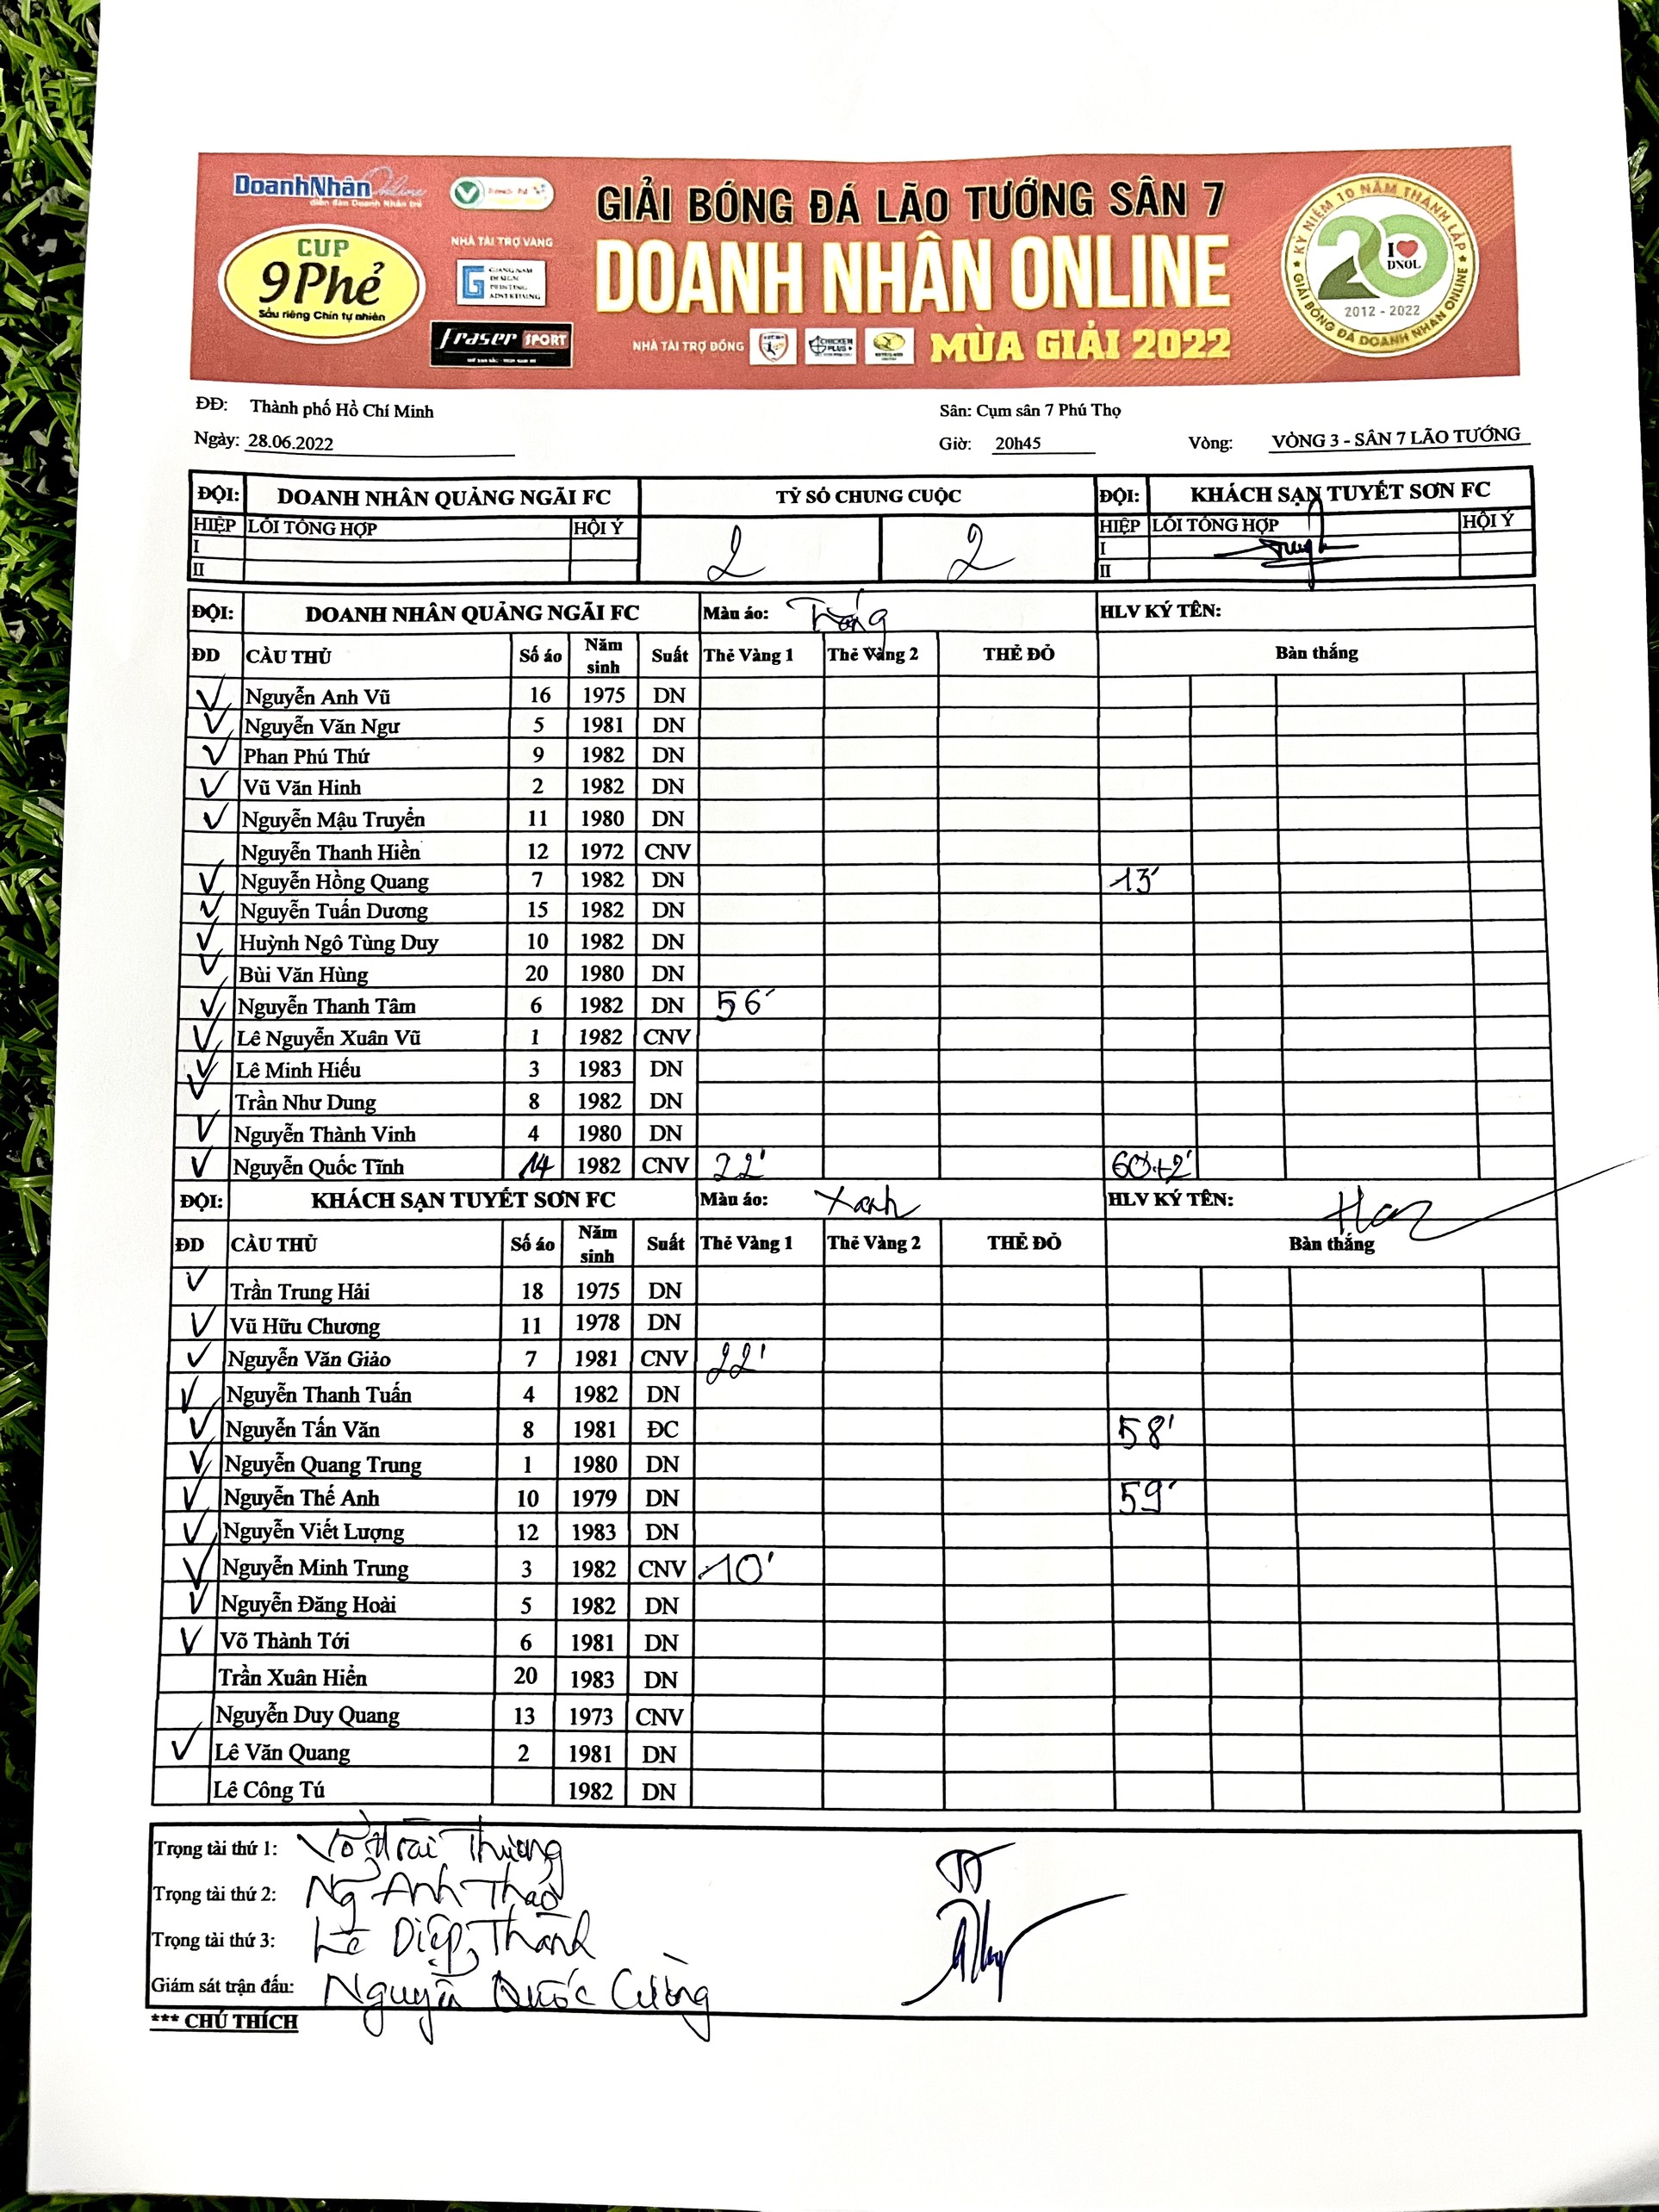 DoanhNhân Online
diễn đàn Doanh Nhân trẻ
CUP
9 Phẻ
Sầu riêng Chín tự nhiên
NHÀ TÀI TRỢ VÀNG
GIANG NAM
DESIGN
PRINTING
ADVERTISING
fraser SPORT
GIẢI BÓNG ĐÁ LÃO TƯỚNG SÂN 7
DOANH NHÂN ONLINE
NHÀ TÀI TRỢ ĐỒNG
CHICKEN PLUS
MÙA GIẢI 2022
KỶ NIỆM 10 NĂM THÀNH LẬP
20
I ❤ DNOL
2012 - 2022
GIẢI BÓNG ĐÁ DOANH NHÂN ONLINE
ĐĐ: Thành phố Hồ Chí Minh Sân: Cụm sân 7 Phú Thọ
Ngày: 28.06.2022 Giờ: 20h45 Vòng: VÒNG 3 - SÂN 7 LÃO TƯỚNG
ĐỘI: DOANH NHÂN QUẢNG NGÃI FC TỶ SỐ CHUNG CUỘC ĐỘI: KHÁCH SẠN TUYẾT SƠN FC
HIỆP LỖI TỔNG HỢP HỘI Ý 2 2 HIỆP LỖI TỔNG HỢP HỘI Ý
I I
II II
ĐỘI: DOANH NHÂN QUẢNG NGÃI FC Màu áo: Trắng HLV KÝ TÊN:
ĐD CẦU THỦ Số áo Năm sinh Suất Thẻ Vàng 1 Thẻ Vàng 2 THẺ ĐỎ Bàn thắng
✓ Nguyễn Anh Vũ 16 1975 DN
✓ Nguyễn Văn Ngư 5 1981 DN
✓ Phan Phú Thứ 9 1982 DN
✓ Vũ Văn Hinh 2 1982 DN
✓ Nguyễn Mậu Truyển 11 1980 DN
Nguyễn Thanh Hiền 12 1972 CNV
✓ Nguyễn Hồng Quang 7 1982 DN 13'
✓ Nguyễn Tuấn Dương 15 1982 DN
✓ Huỳnh Ngô Tùng Duy 10 1982 DN
✓ Bùi Văn Hùng 20 1980 DN
✓ Nguyễn Thanh Tâm 6 1982 DN 56'
✓ Lê Nguyễn Xuân Vũ 1 1982 CNV
✓ Lê Minh Hiếu 3 1983 DN
✓ Trần Như Dung 8 1982 DN
✓ Nguyễn Thành Vinh 4 1980 DN
✓ Nguyễn Quốc Tĩnh 14 1982 CNV 22' 60+2'
ĐỘI: KHÁCH SẠN TUYẾT SƠN FC Màu áo: Xanh HLV KÝ TÊN:
ĐD CẦU THỦ Số áo Năm sinh Suất Thẻ Vàng 1 Thẻ Vàng 2 THẺ ĐỎ Bàn thắng
✓ Trần Trung Hải 18 1975 DN
✓ Vũ Hữu Chương 11 1978 DN
✓ Nguyễn Văn Giảo 7 1981 CNV 22'
✓ Nguyễn Thanh Tuấn 4 1982 DN
✓ Nguyễn Tấn Văn 8 1981 ĐC 58'
✓ Nguyễn Quang Trung 1 1980 DN
✓ Nguyễn Thế Anh 10 1979 DN 59'
✓ Nguyễn Viết Lượng 12 1983 DN
✓ Nguyễn Minh Trung 3 1982 CNV 10'
✓ Nguyễn Đăng Hoài 5 1982 DN
✓ Võ Thành Tới 6 1981 DN
Trần Xuân Hiển 20 1983 DN
Nguyễn Duy Quang 13 1973 CNV
✓ Lê Văn Quang 2 1981 DN
Lê Công Tú 1982 DN
Trọng tài thứ 1: Võ Hoài Thương
Trọng tài thứ 2: Ng Anh Thảo
Trọng tài thứ 3: Lê Diệp Thành
Giám sát trận đấu: Nguyễn Quốc Cường
*** CHÚ THÍCH